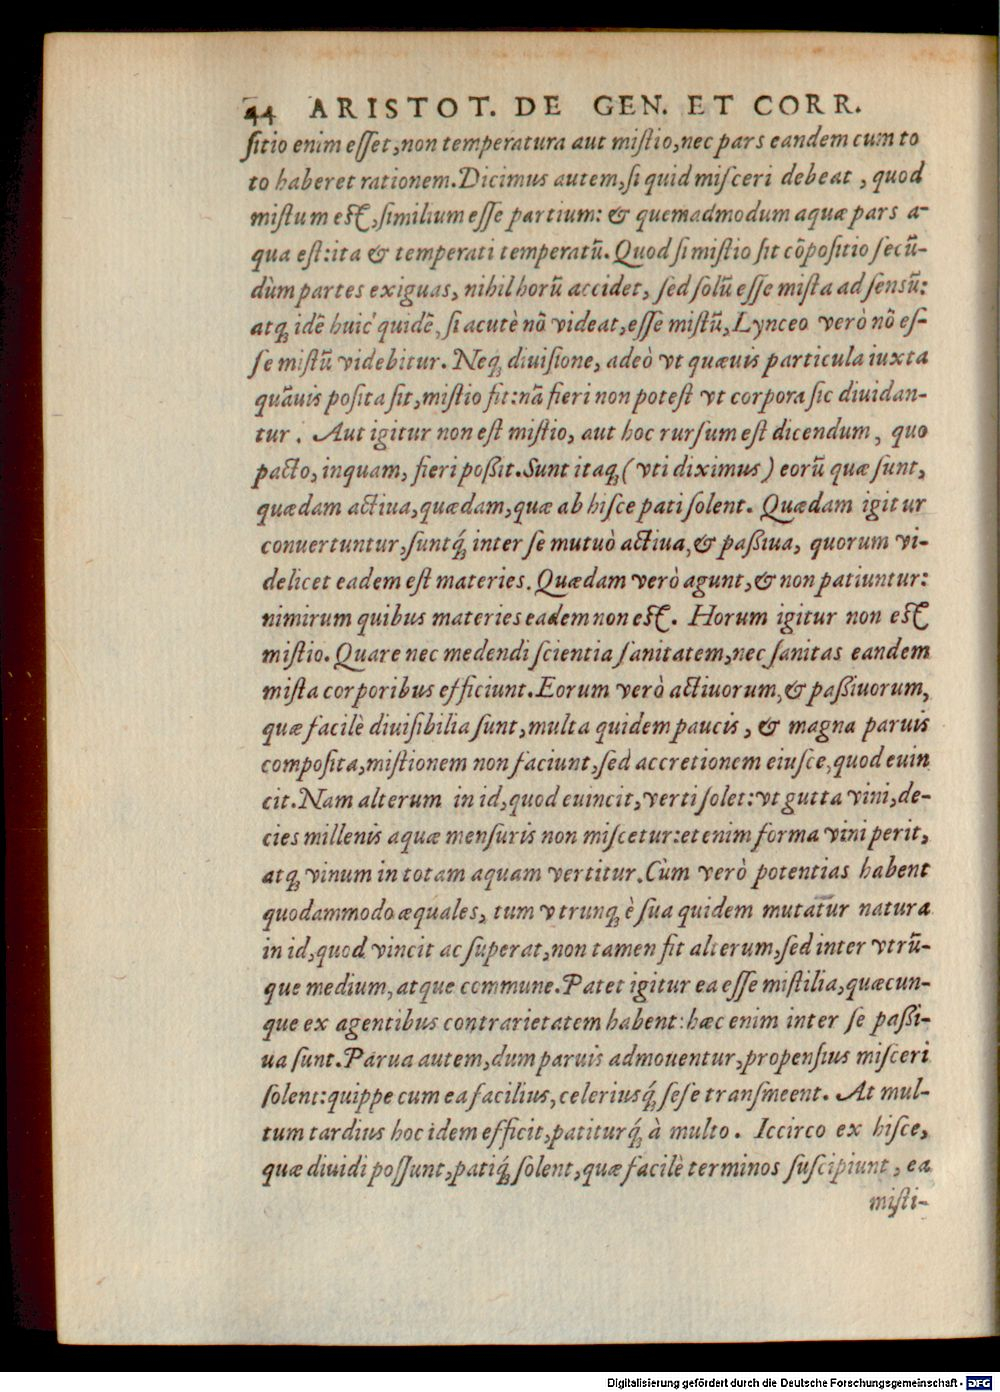 44 ARISTOT. DE GEN. ET CORR.
ſitio enim eſſet, non temperatura aut miſtio, nec pars eandem cum to
to haberet rationem. Dicimus autem, ſi quid miſceri debeat, quod
miſtum eſt, ſimilium eſſe partium: & quemadmodum aquæ pars a-
qua eſt: ita & temperati temperatū. Quod ſi miſtio ſit cōpoſitio ſecū-
dùm partes exiguas, nihil horū accidet, ſed ſolū eſſe miſta ad ſensū:
atq; idē huic quidē, ſi acutè nō videat, eſſe miſtū, Lynceo verò nō eſ-
ſe miſtū videbitur. Neq; diuiſione, adeò vt quæuis particula iuxta
quāuis poſita ſit, miſtio fit: nā fieri non poteſt vt corpora ſic diuidan-
tur. Aut igitur non eſt miſtio, aut hoc rurſum eſt dicendum, quo
pacto, inquam, fieri poßit. Sunt itaq; (vti diximus) eorū quæ ſunt,
quædam actiua, quædam, quæ ab hiſce pati ſolent. Quædam igitur
conuertuntur, ſuntq́; inter ſe mutuò actiua, & paßiua, quorum vi-
delicet eadem eſt materies. Quædam verò agunt, & non patiuntur:
nimirum quibus materies eadem non eſt. Horum igitur non eſt
miſtio. Quare nec medendi ſcientia ſanitatem, nec ſanitas eandem
miſta corporibus efficiunt. Eorum verò actiuorum, & paßiuorum,
quæ facilè diuiſibilia ſunt, multa quidem paucis, & magna paruis
compoſita, miſtionem non faciunt, ſed accretionem eiuſce, quod euin
cit. Nam alterum in id, quod euincit, verti ſolet: vt gutta vini, de-
cies millenis aquæ menſuris non miſcetur: etenim forma vini perit,
atq; vinum in totam aquam vertitur. Cùm verò potentias habent
quodammodo æquales, tum vtrunq; è ſua quidem mutatur natura
in id, quod vincit ac ſuperat, non tamen fit alterum, ſed inter vtrū-
que medium, atque commune. Patet igitur ea eſſe miſtilia, quæcun-
que ex agentibus contrarietatem habent: hæc enim inter ſe paßi-
ua ſunt. Parua autem, dum paruis admouentur, propenſius miſceri
ſolent: quippe cum ea facilius, celeriusq́; ſeſe tranſmeent. At mul-
tum tardius hoc idem efficit, patiturq́; à multo. Iccirco ex hiſce,
quæ diuidi poſſunt, patiq́; ſolent, quæ facilè terminos ſuſcipiunt, ea
miſti-
Digitalisierung gefördert durch die Deutsche Forschungsgemeinschaft - DFG